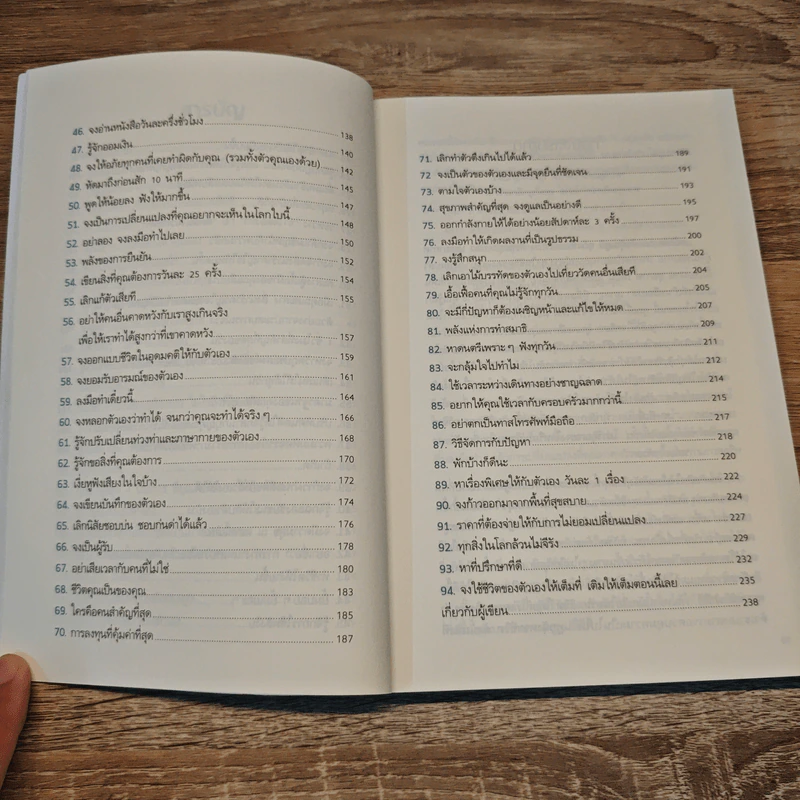 46. จงอ่านหนังสือวันละครึ่งชั่วโมง 138
47. รู้จักออมเงิน 140
48. จงให้อภัยทุกคนที่เคยทำผิดกับคุณ (รวมทั้งตัวคุณเองด้วย) 142
49. หัดมาถึงก่อนสัก 10 นาที 145
50. พูดให้น้อยลง ฟังให้มากขึ้น 147
51. จงเป็นการเปลี่ยนแปลงที่คุณอยากจะเห็นในโลกใบนี้ 148
52. อย่าลอง จงลงมือทำไปเลย 150
53. พลังของการยืนยัน 152
54. เขียนสิ่งที่คุณต้องการวันละ 25 ครั้ง 154
55. เลิกแก้ตัวเสียที 155
56. อย่าให้คนอื่นคาดหวังกับเราสูงเกินจริง
เพื่อให้เราทำได้สูงกว่าที่เขาคาดหวัง 157
57. จงออกแบบชีวิตในอุดมคติให้กับตัวเอง 159
58. จงยอมรับอารมณ์ของตัวเอง 161
59. ลงมือทำเดี๋ยวนี้ 164
60. จงหลอกตัวเองว่าทำได้ จนกว่าคุณจะทำได้จริง ๆ 166
61. รู้จักปรับเปลี่ยนท่วงท่าและภาษากายของตัวเอง 168
62. รู้จักขอสิ่งที่คุณต้องการ 170
63. เงี่ยหูฟังเสียงในใจบ้าง 172
64. จงเขียนบันทึกของตัวเอง 174
65. เลิกนิสัยชอบบ่น ชอบก่นด่าได้แล้ว 176
66. จงเป็นผู้รับ 178
67. อย่าเสียเวลากับคนที่ไม่ใช่ 180
68. ชีวิตคุณเป็นของคุณ 183
69. ใครคือคนสำคัญที่สุด 185
70. การลงทุนที่คุ้มค่าที่สุด 187
71. เลิกทำตัวตึงเกินไปได้แล้ว 189
72 จงเป็นตัวของตัวเองและมีจุดยืนที่ชัดเจน 191
73. ตามใจตัวเองบ้าง 193
74. สุขภาพสำคัญที่สุด จงดูแลเป็นอย่างดี 195
75. ออกกำลังกายให้ได้อย่างน้อยสัปดาห์ละ 3 ครั้ง 197
76. ลงมือทำให้เกิดผลงานที่เป็นรูปธรรม 200
77. จงรู้สึกสนุก 202
78. เลิกเอาไม้บรรทัดของตัวเองไปเที่ยววัดคนอื่นเสียที 204
79. เอื้อเฟื้อคนที่คุณไม่รู้จักทุกวัน 205
80. จะมีกี่ปัญหาก็ต้องเผชิญหน้าและแก้ไขให้หมด 207
81. พลังแห่งการทำสมาธิ 209
82. หาดนตรีเพราะ ๆ ฟังทุกวัน 211
83. จะกลุ้มใจไปทำไม 212
84. ใช้เวลาระหว่างเดินทางอย่างชาญฉลาด 214
85. อยากให้คุณใช้เวลากับครอบครัวมากกว่านี้ 215
86. อย่าตกเป็นทาสโทรศัพท์มือถือ 217
87. วิธีจัดการกับปัญหา 218
88. พักบ้างก็ดีนะ 220
89. หาเรื่องพิเศษให้กับตัวเอง วันละ 1 เรื่อง 222
90. จงก้าวออกมาจากพื้นที่สุขสบาย 224
91. ราคาที่ต้องจ่ายให้กับการไม่ยอมเปลี่ยนแปลง 227
92. ทุกสิ่งในโลกล้วนไม่จีรัง 229
93. หาที่ปรึกษาที่ดี 232
94. จงใช้ชีวิตของตัวเองให้เต็มที่ เติมให้เต็มตอนนี้เลย 235
เกี่ยวกับผู้เขียน 238